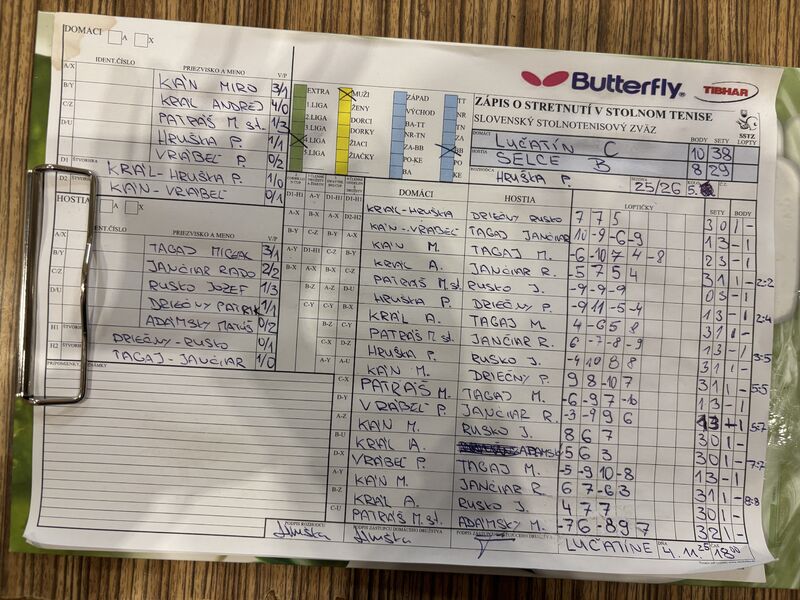 DOMACI A X
Butterfly
TIBHAR
IDENT.ČÍSLO PRIEZVISKO A MENO V/P
A/X KÁN MIRO 3/1
B/Y KRÁĽ ANDREJ 4/0
C/Z PATRÁŠ M st. 1/3
D/U HRUŠKA P. 1/1
VRÁBEĽ P. 0/2
D1 ŠTVORHRA KRÁĽ-HRUŠKA P. 1/0
D2 ŠTVORHRA KÁN-VRÁBEĽ 0/1
EXTRA MUŽI ZÁPAD TT
1.LIGA ŽENY VÝCHOD NR
2.LIGA DORCI BA-TT TN
3.LIGA DORKY NR-TN ZA
4.LIGA ŽIACI ZA-BB BB
5.LIGA ŽIAČKY PO-KE PO
BA KE
ZÁPIS O STRETNUTÍ V STOLNOM TENISE
SLOVENSKÝ STOLNOTENISOVÝ ZVÄZ
SSTZ
DOMÁCI LUČATÍN C BODY 10 SETY 38 LOPTY
HOSTIA SELCE B 8 29
ROZHODCA HRUŠKA P. SEZÓNA 25/26 KOLO 5.
HOSTIA
IDENT.ČÍSLO PRIEZVISKO A MENO V/P
A/X TAGAJ MICHAL 3/1
B/Y JANČIAR RADO 2/2
C/Z RUSKO JOZEF 1/3
D/U DRIEČNY PATRIK 1/1
ADAMSKY MATÚŠ 0/2
H1 ŠTVORHRA DRIEČNY-RUSKO 0/1
H2 ŠTVORHRA TAGAJ-JANČIAR 1/0
PRIPOMIENKY, ZNÁMKY
DOMÁCI HOSTIA LOPTIČKY SETY BODY
KRÁĽ-HRUŠKA DRIEČNY RUSKO 7 7 5 3 0 1 -
KÁN-VRÁBEĽ TAGAJ JANČIAR 10 -9 -6 -9 1 3 - 1
KÁN M. TAGAJ M. -6 -10 7 4 -8 2 3 - 1
KRÁĽ A. JANČIAR R. -5 7 5 4 3 1 1 - 2:2
PATRÁŠ M.st. RUSKO J. -9 -9 -9 0 3 - 1
HRUŠKA P. DRIEČNY P. -9 11 -5 -4 1 3 - 1 2:4
KRÁĽ A. TAGAJ M. 4 -6 5 8 3 1 1 -
PATRÁŠ M. JANČIAR R. 6 -7 -8 -9 1 3 - 1 3:5
HRUŠKA P. RUSKO J. -4 10 8 8 3 1 1 -
KÁN M. DRIEČNY P. 9 8 -10 7 3 1 1 - 5:5
PATRÁŠ M. TAGAJ M. -6 -9 7 -6 1 3 - 1
VRÁBEĽ P. JANČIAR R. -3 -9 9 6 1 3 - 1 5:7
KÁN M. RUSKO J. 8 6 7 3 0 1 -
KRÁĽ A. ADAMSKY 5 6 3 3 0 1 - 7:7
VRÁBEĽ P. TAGAJ M. -5 9 -10 -8 1 3 - 1
KÁN M. JANČIAR R. 6 7 -6 3 3 1 1 - 8:8
KRÁĽ A. RUSKO J. 4 7 7 3 0 1 -
PATRÁŠ M. st. ADAMSKY M. -7 6 -8 9 7 3 2 1 -
PODPIS ROZHODCU Hruška
PODPIS ZÁSTUPCU DOMÁCEHO DRUŽSTVA Hruška
LUČATÍNE DŇA 4.11.25 18 00